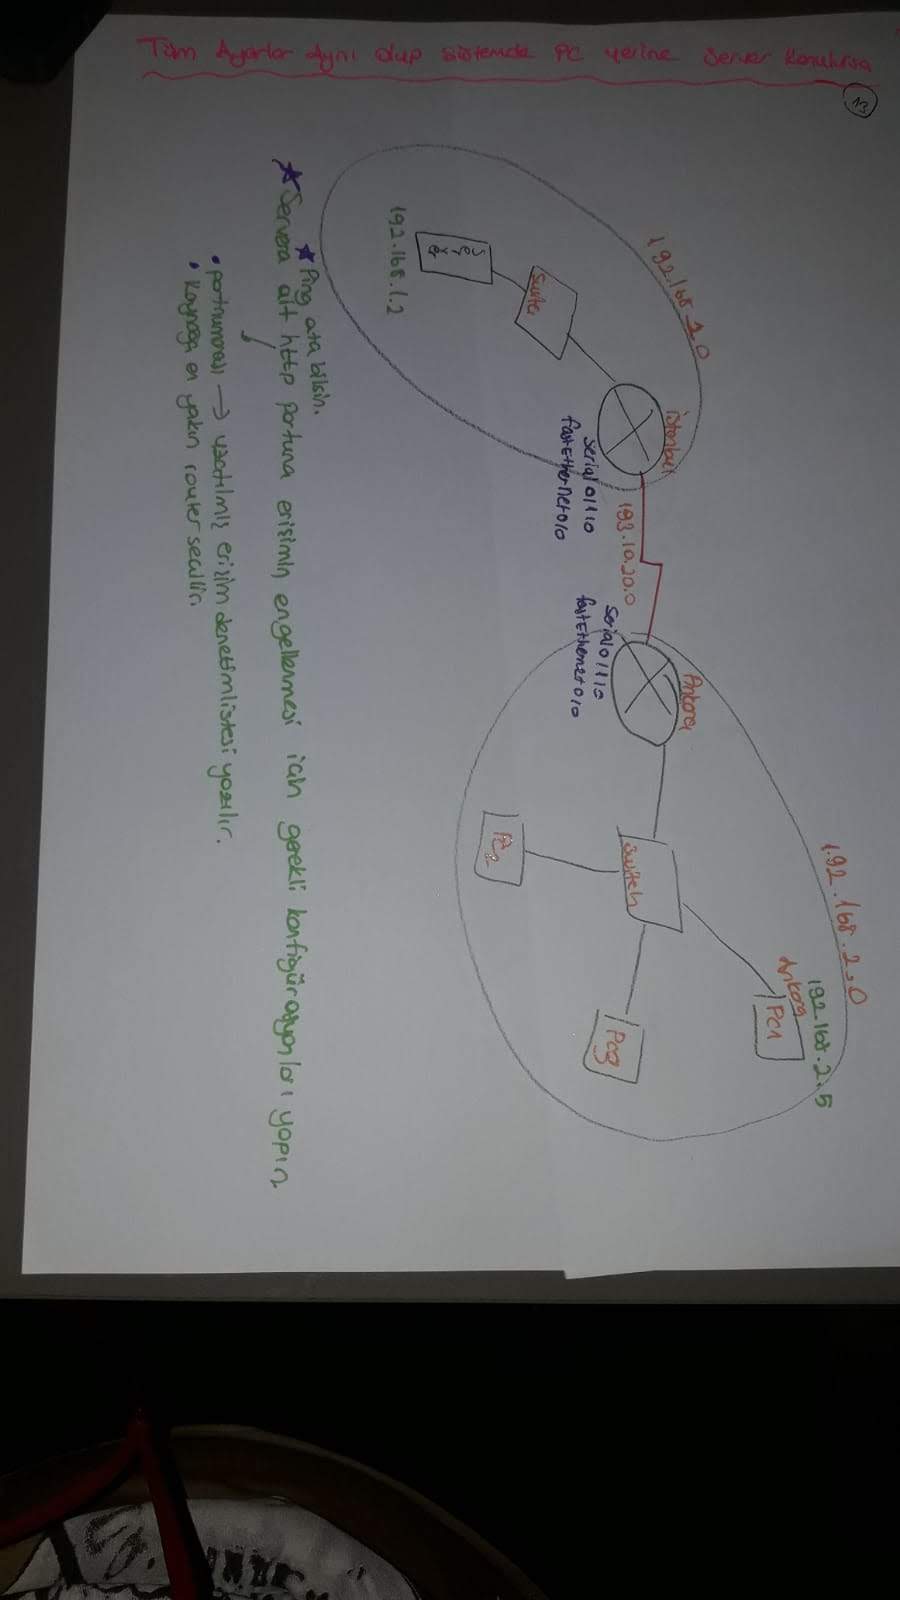 Tüm Ayarlar Aynı olup sistemde PC yerine Server Konulursa
13
192.168.1.0
istanbul
Switch
Server
192.168.1.2
Serial 0/1/0
fastEthernet 0/0
193.10.20.0
Ankara
Serial 0/1/0
fastEthernet 0/0
192.168.2.0
192.168.2.5
Ankara
PC1
Switch
PC2
PC3
★ Ping atabilsin.
★ Servera ait http portuna erişimin engellenmesi için gerekli konfigürasyonları yapın
• port numarası → uzatılmış erişim denetim listesi yazılır.
• Kaynağa en yakın router seçilir.